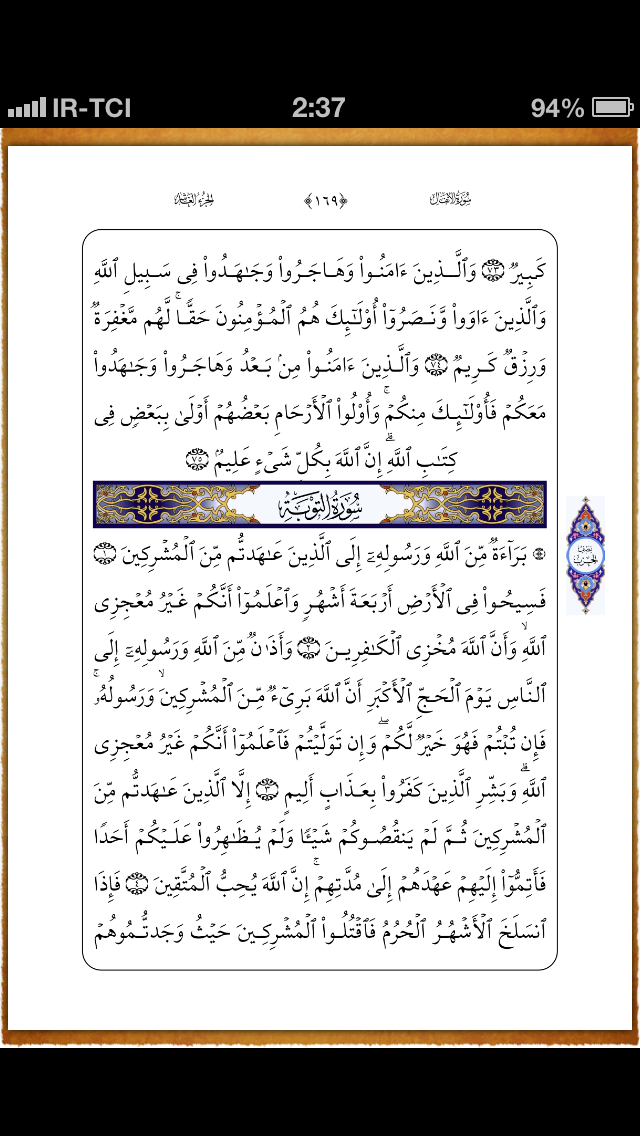 IR-TCI 2:37 94%
سُورَةُ الأَنفَال ﴿١٦٩﴾ الجُزءُ العَاشِر
كَبِيرٌ ٧٣ وَٱلَّـذِينَ ءَامَنُـوا۟ وَهَـاجَـرُوا۟ وَجَـٰهَـدُوا۟ فِى سَـبِيلِ ٱللَّهِ
وَٱلَّذِينَ ءَاوَوا۟ وَّنَـصَرُوٓا۟ أُو۟لَـٰٓئِكَ هُمُ ٱلْمُـؤْمِنُونَ حَقًّـا ۚ لَّهُم مَّغْفِرَةٌ
وَرِزْقٌ كَـرِيمٌ ٧٤ وَٱلَّـذِينَ ءَامَنُـوا۟ مِنۢ بَعْـدُ وَهَاجَـرُوا۟ وَجَـٰهَدُوا۟
مَعَكُمْ فَأُو۟لَـٰٓئِـكَ مِنكُمْ ۚ وَأُو۟لُوا۟ ٱلْأَرْحَامِ بَعْضُهُمْ أَوْلَىٰ بِبَعْضٍ فِى
كِتَـٰبِ ٱللَّهِ ۗ إِنَّ ٱللَّهَ بِكُلِّ شَىْءٍ عَلِيمٌ ٧٥
سُورَةُ التَّوْبَةِ
بَرَآءَةٌ مِّنَ ٱللَّهِ وَرَسُولِهِۦٓ إِلَى ٱلَّذِينَ عَـٰهَدتُّم مِّنَ ٱلْمُشْرِكِينَ ١
نِصْفُ الحِزْب
فَسِيحُـوا۟ فِى ٱلْأَرْضِ أَرْبَعَـةَ أَشْهُـرٍ وَٱعْلَمُـوٓا۟ أَنَّكُمْ غَيْـرُ مُعْجِزِى
ٱللَّهِ ۙ وَأَنَّ ٱللَّهَ مُخْزِى ٱلْكَـٰفِرِيـنَ ٢ وَأَذَٰنٌ مِّنَ ٱللَّهِ وَرَسُولِهِۦٓ إِلَى
ٱلنَّاسِ يَـوْمَ ٱلْحَـجِّ ٱلْأَكْبَرِ أَنَّ ٱللَّهَ بَرِىٓءٌ مِّـنَ ٱلْمُشْرِكِينَ ۙ وَرَسُولُهُۥ ۚ
فَإِن تُبْتُمْ فَهُوَ خَيْرٌ لَّكُمْ ۖ وَإِن تَوَلَّيْتُمْ فَٱعْلَمُوٓا۟ أَنَّكُمْ غَيْرُ مُعْجِزِى
ٱللَّهِ ۗ وَبَشِّرِ ٱلَّذِينَ كَفَرُوا۟ بِعَـذَابٍ أَلِيمٍ ٣ إِلَّا ٱلَّذِينَ عَـٰهَدتُّم مِّنَ
ٱلْمُشْرِكِينَ ثُـمَّ لَمْ يَنقُصُـوكُمْ شَيْـًٔا وَلَمْ يُـظَـٰهِرُوا۟ عَلَـيْكُمْ أَحَدًا
فَأَتِمُّـوٓا۟ إِلَيْهِمْ عَهْدَهُمْ إِلَىٰ مُدَّتِهِمْ ۚ إِنَّ ٱللَّهَ يُحِبُّ ٱلْمُتَّقِينَ ٤ فَإِذَا
ٱنسَلَخَ ٱلْأَشْهُـرُ ٱلْحُرُمُ فَٱقْتُلُـوا۟ ٱلْمُشْرِكِـينَ حَيْثُ وَجَدتُّـمُوهُمْ